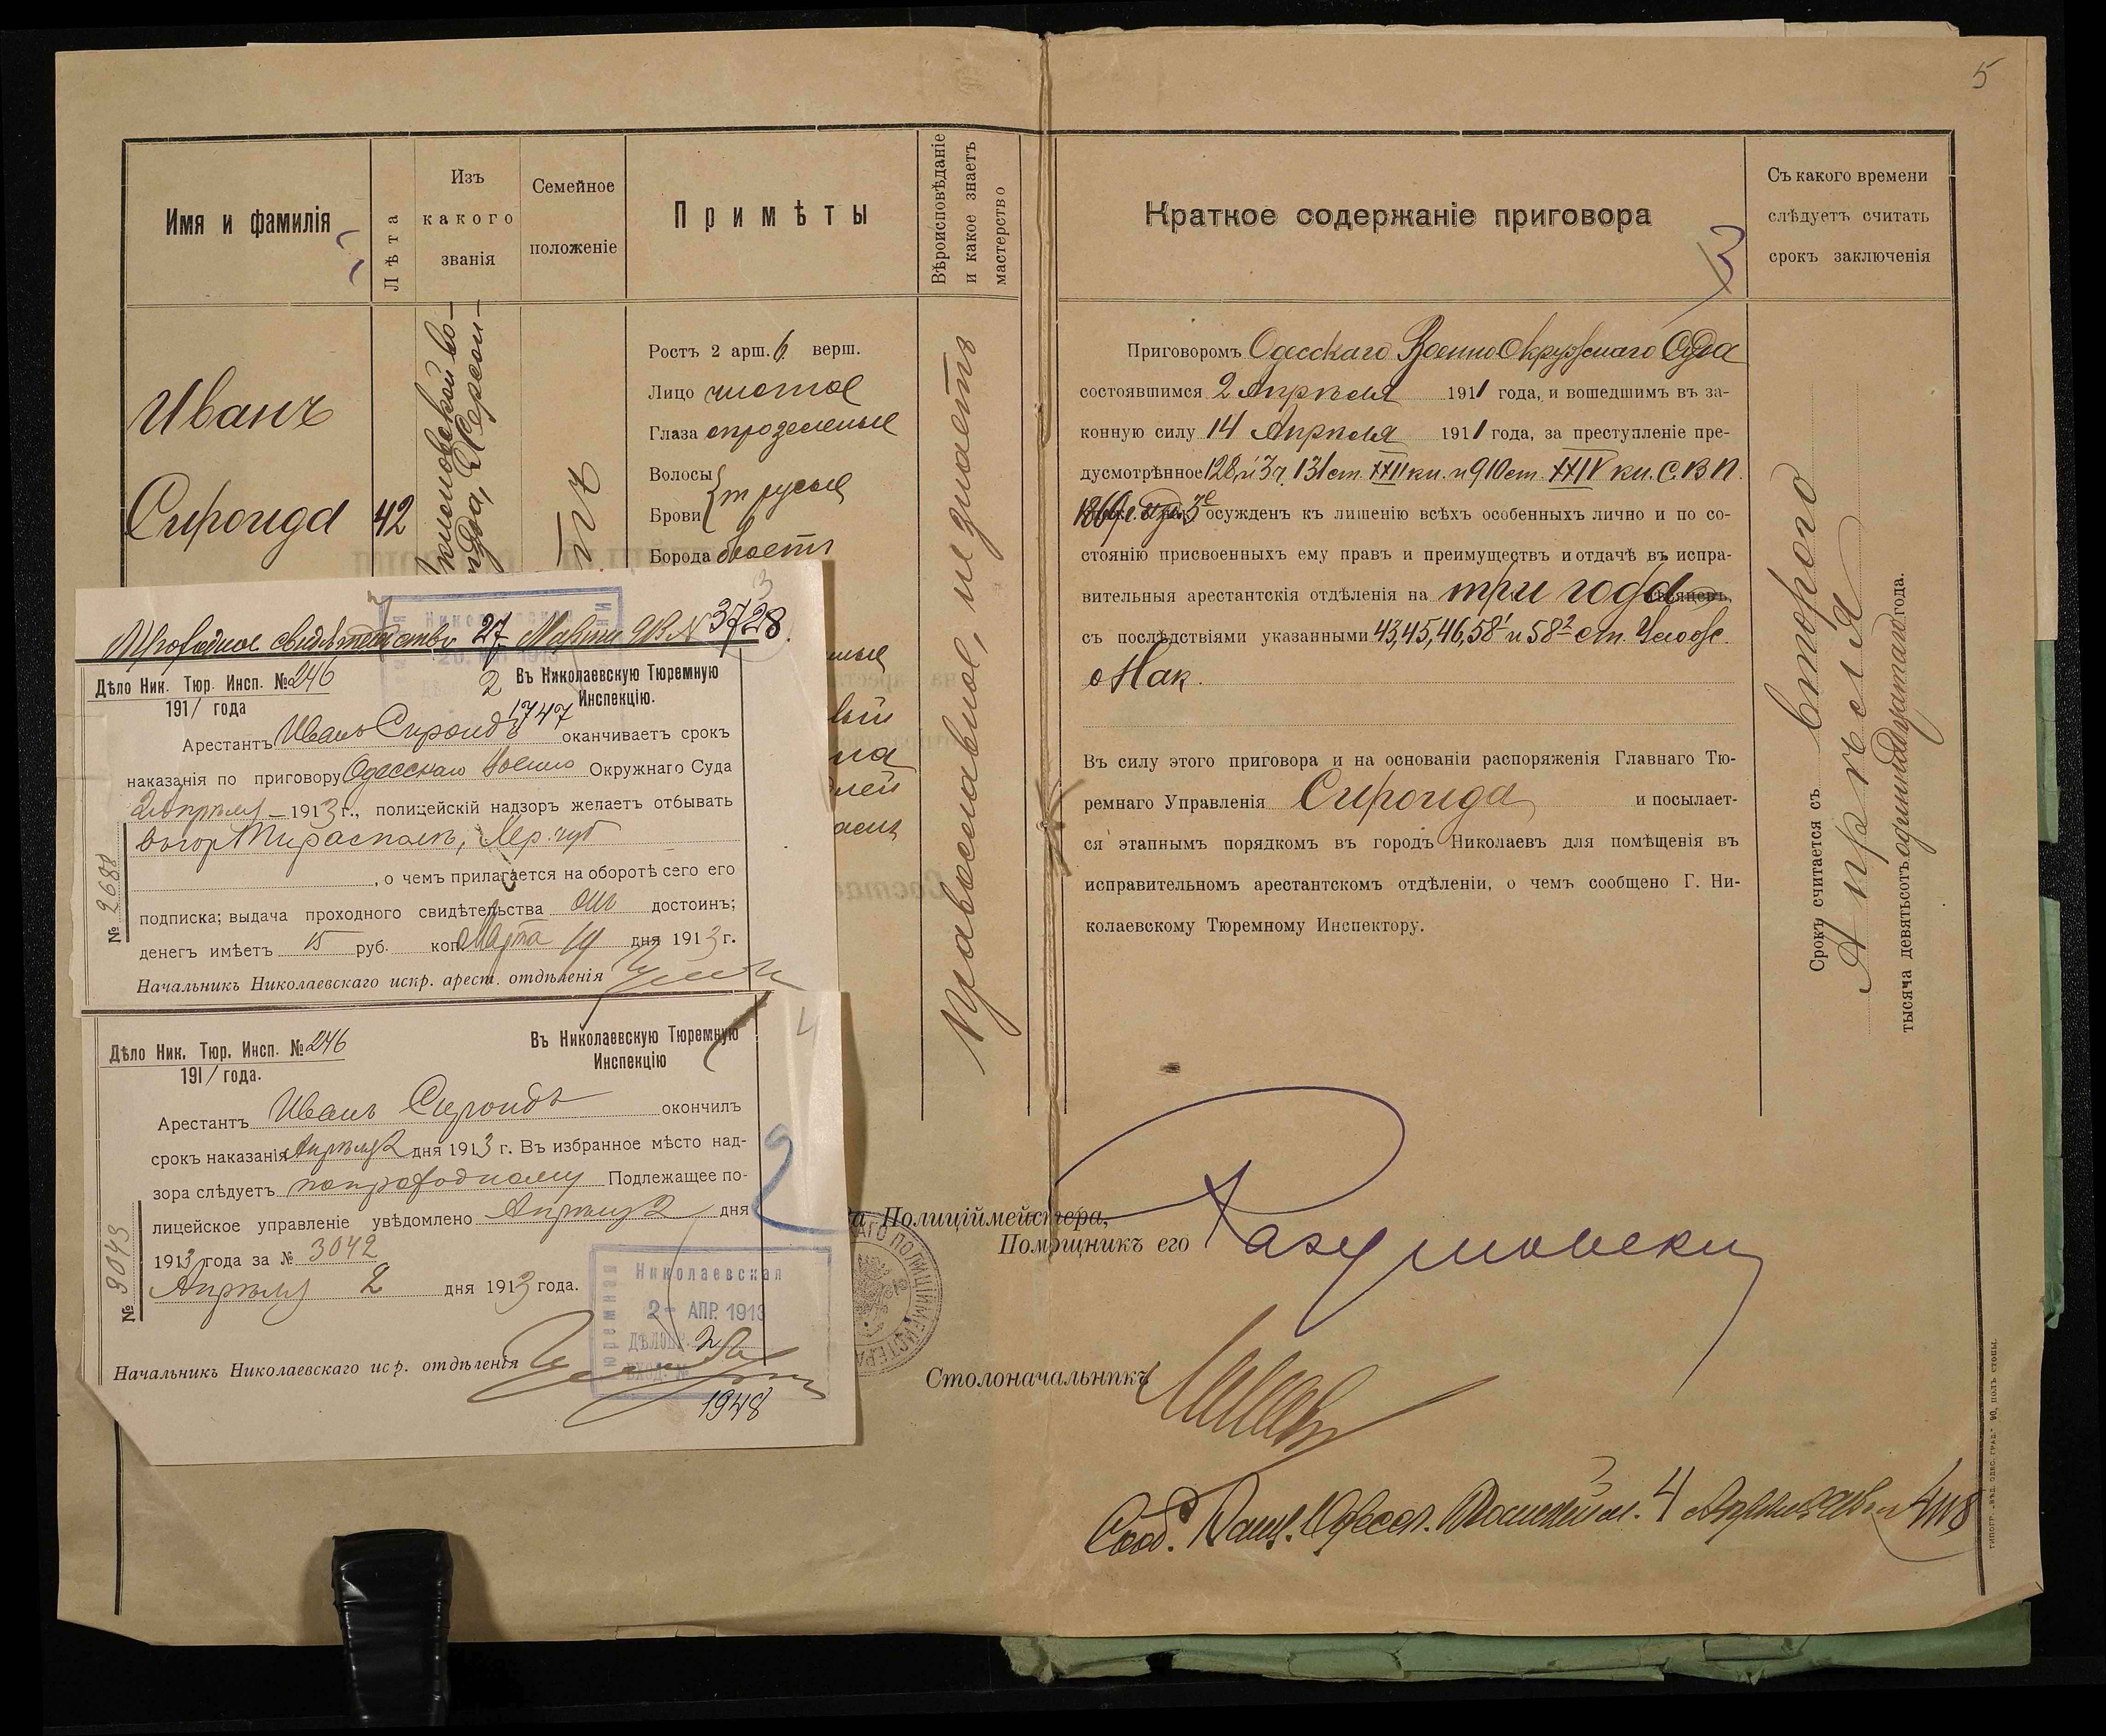 5
Имя и фамилія
Лѣта
Изъ
какого
званія
Семейное
положеніе
Примѣты
Вѣроисповѣданіе
и какое знаетъ
мастерство
Иванъ
Сиронда
42
Ростъ 2 арш. 6 верш.
Лицо чистое
Глаза
Волосы
т русые
Брови
Борода бреетъ
православное, не знаетъ
Проходное свидѣтельство 27 Марта 913 № 3728.
Дѣло Ник. Тюр. Инсп. № 246
1911 года
2
1747
Въ Николаевскую Тюремную
Инспекцію.
Арестантъ Иванъ Сирондъ оканчиваетъ срокъ
наказанія по приговору Одесскаго Военно Окружнаго Суда
2 Апрѣля 1913 г., полицейскій надзоръ желаетъ отбывать
въ гор Тирасполѣ, Хер. губ
, о чемъ прилагается на оборотѣ сего его
подписка; выдача проходного свидѣтельства онъ достоинъ;
денегъ имѣетъ 15 руб. коп. Марта 19 дня 1913 г.
Начальникъ Николаевскаго испр. арест. отдѣленія
№ 2688
Дѣло Ник. Тюр. Инсп. № 246
1911 года.
Въ Николаевскую Тюремную
Инспекцію
4
Арестантъ Иванъ Сирондъ окончилъ
срокъ наказанія Апрѣля 2 дня 1913 г. Въ избранное мѣсто над-
зора слѣдуетъ попроходному Подлежащее по-
лицейское управленіе увѣдомлено Апрѣля 2 дня
1913 года за № 3042
Апрѣля 2 дня 1913 года.
№ 3043
Николаевская
2 - АПР. 1913
Начальникъ Николаевскаго испр. отдѣленія
1948
Краткое содержаніе приговора
3
Съ какого времени
слѣдуетъ считать
срокъ заключенія
Приговоромъ Одесскаго Военно Окружнаго Суда
состоявшимся 2 Апрѣля 1911 года, и вошедшимъ въ за-
конную силу 14 Апрѣля 1911 года, за преступленіе пре-
дусмотрѣнное 128, и 3 ч. 131 ст. XXII кн. и 910 ст. XXIV кн. С. В. П.
1869 г. изд. 3е осужденъ къ лишенію всѣхъ особенныхъ лично и по со-
стоянію присвоенныхъ ему правъ и преимуществъ и отдачѣ въ испра-
вительныя арестантскія отдѣленія на три года мѣсяцевъ,
съ послѣдствіями указанными 43, 45, 46, 58¹ и 58² ст. Улож.
о Нак.
Въ силу этого приговора и на основаніи распоряженія Главнаго Тю-
ремнаго Управленія Сиронда и посылает-
ся этапнымъ порядкомъ въ городъ Николаевъ для помѣщенія въ
исправительномъ арестантскомъ отдѣленіи, о чемъ сообщено Г. Ни-
колаевскому Тюремному Инспектору.
Срокъ считается съ Второго
Апрѣля
тысяча девятьсотъ одиннадцатаго года.
Полиціймейстера,
Помощникъ его
Столоначальникъ